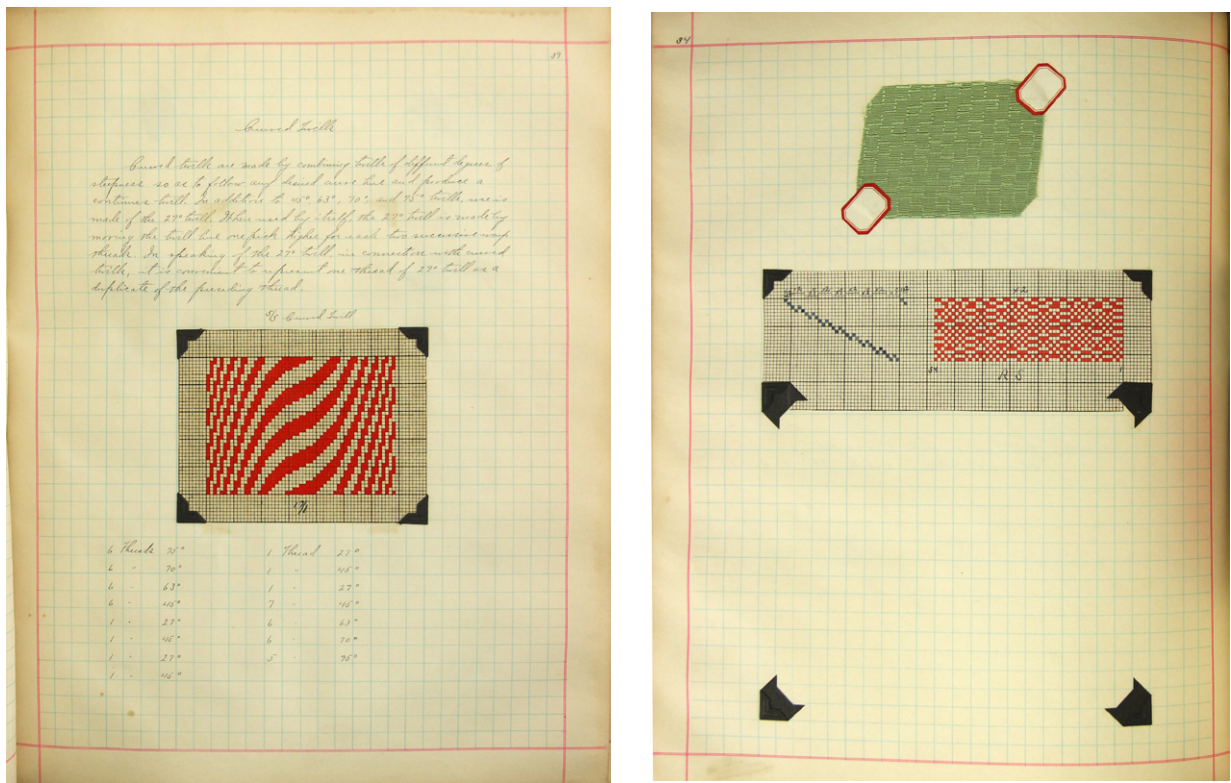 Curved Twills
Curved twills are made by combining twills of different degrees of
steepness so as to follow any desired curve line and produce a
continuous twill. In addition to 45°, 63°, 70°, and 75° twills, use is
made of the 27° twill. When used by itself, the 27° twill is made by
moving the twill line one pick higher for each two successive warp
threads. In speaking of the 27° twill, in connection with curved
twills, it is convenient to represent one thread of 27° twill as a
duplicate of the preceding thread.
Curved Twill
6 Threads 75° 1 Thread 27°
6 " 70° 1 " 45°
6 " 63° 1 " 27°
6 " 45° 7 " 45°
1 " 27° 6 " 63°
1 " 45° 6 " 70°
1 " 27° 5 " 75°
1 " 45°
34
54 1
R S